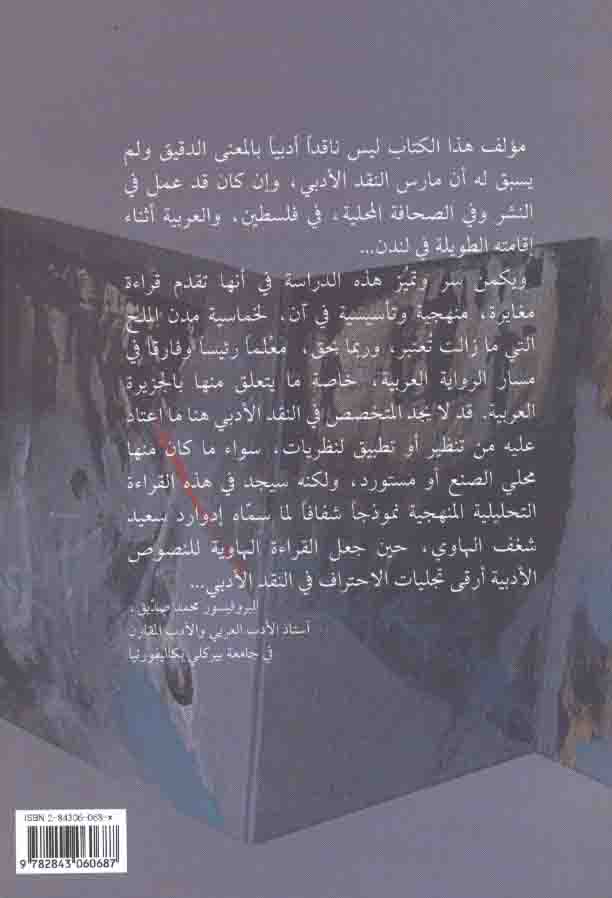 مؤلف هذا الكتاب ليس ناقداً أدبياً بالمعنى الدقيق ولم
يسبق له أن مارس النقد الأدبي، وإن كان قد عمل في
النشر وفي الصحافة المحلية، في فلسطين، والعربية أثناء
إقامته الطويلة في لندن...
ويكمن سر وتميّز هذه الدراسة في أنها تقدم قراءة
مغايرة، منهجية وتأسيسية في آن، لخماسية مدن الملح
التي ما زالت تعتبر، وربما بحق، معْلماً رئيساً وفارقاً في
مسار الرواية العربية، خاصة ما يتعلق منها بالجزيرة
العربية. قد لا يجد المتخصص في النقد الأدبي هنا ما اعتاد
عليه من تنظير أو تطبيق لنظريات، سواء ما كان منها
محلي الصنع أو مستورد، ولكنه سيجد في هذه القراءة
التحليلية المنهجية نموذجاً شفافاً لما سمّاه إدوارد سعيد
شغف الهاوي، حين جعل القراءة الهاوية للنصوص
الأدبية أرقى تجليات الاحتراف في النقد الأدبي...
البروفيسور محمد صدّيق،
أستاذ الأدب العربي والأدب المقارن
في جامعة بيركلي بكاليفورنيا
ISBN 2-84306-068-x
9 782843 060687